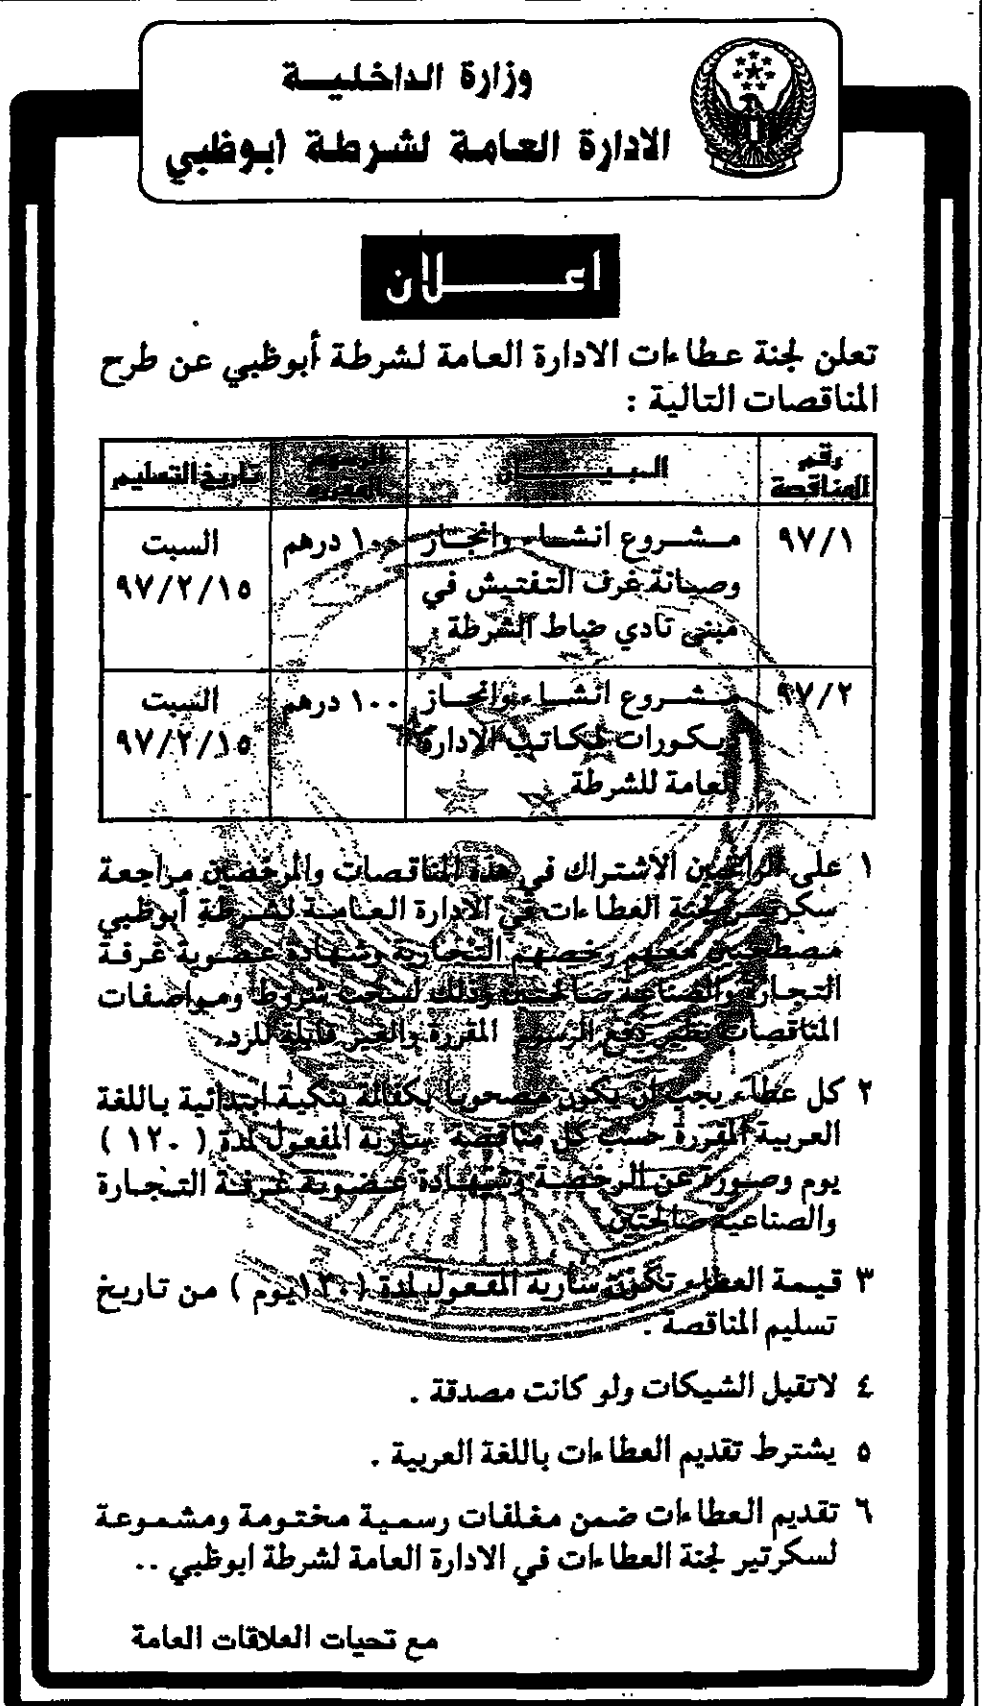 وزارة الداخليـــة
الادارة العامة لشرطة أبوظبي
اعـــــلان
تعلن لجنة عطاءات الادارة العامة لشرطة أبوظبي عن طرح
المناقصات التالية :
رقم المناقصة البيـــــــان الرسوم المقررة تاريخ التسليم
٩٧/١ مشروع انشاء وانجاز ١٠٠ درهم السبت
وصيانة غرف التفتيش في ٩٧/٢/١٥
مبنى نادي ضباط الشرطة
٩٧/٢ مشروع انشاء وانجاز ١٠٠ درهم السبت
ديكورات لمكاتب الادارة ٩٧/٢/١٥
العامة للشرطة
١ على الراغبين الاشتراك في هذه المناقصات والمرخصان مراجعة
سكرتير لجنة العطاءات في الادارة العامة لشرطة أبوظبي
مصطحبين معهم رخصهم التجارية وشهادة عضوية غرفة
التجارة والصناعة صالحتين وذلك لسحب شروط ومواصفات
المناقصات نظير دفع الرسوم المقررة والغير قابلة للرد.
٢ كل عطاء يجب أن يكون مصحوبا بكفالة بنكية ابتدائية باللغة
العربية المقررة حسب كل مناقصة سارية المفعول لمدة ( ١٢٠ )
يوم وصورة عن الرخصة وشهادة عضوية غرفة التجارة
والصناعية صالحتين
٣ قيمة العطاء تكون سارية المفعول لمدة ( ١٢٠ يوم ) من تاريخ
تسليم المناقصة .
٤ لاتقبل الشيكات ولو كانت مصدقة .
٥ يشترط تقديم العطاءات باللغة العربية .
٦ تقديم العطاءات ضمن مغلفات رسمية مختومة ومشموعة
لسكرتير لجنة العطاءات في الادارة العامة لشرطة ابوظبي ..
مع تحيات العلاقات العامة